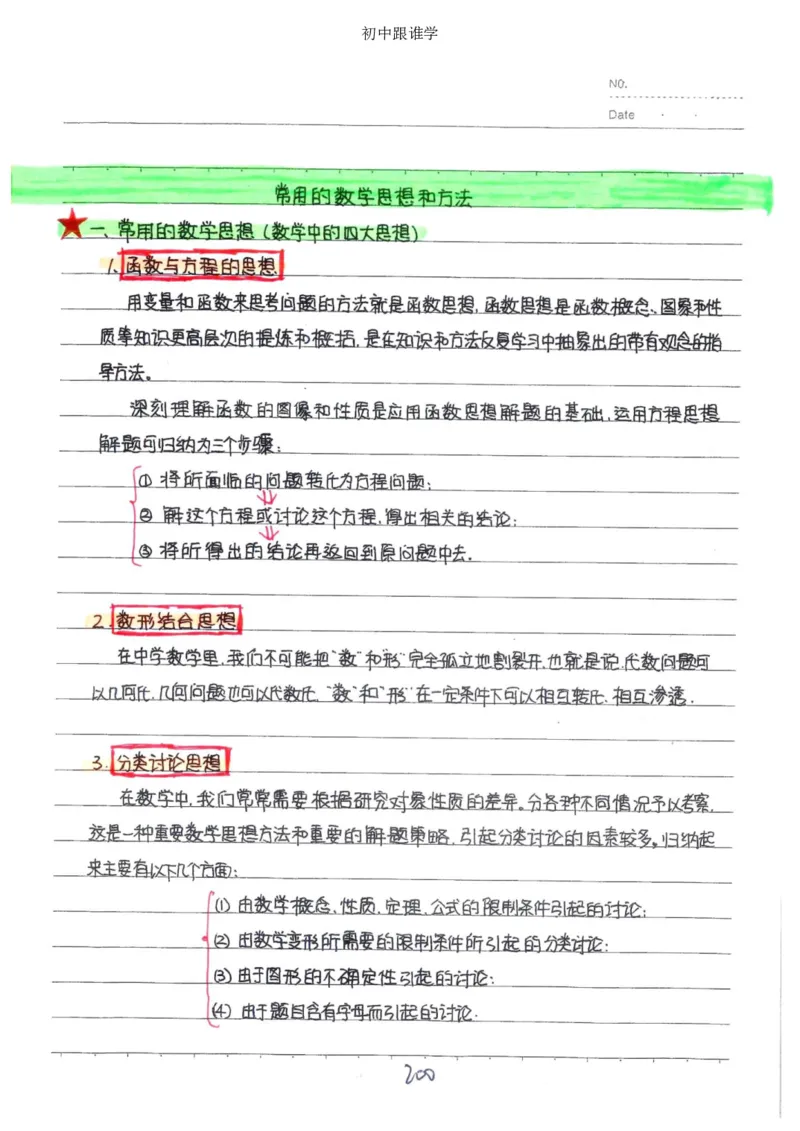 初中跟谁学
No.
Date
常用的数学思想和方法
一、常用的数学思想(数学中的四大思想)
1.函数与方程的思想
用变量和函数来思考问题的方法就是函数思想,函数思想是函数概念、图象和性
质等知识更高层次的提炼和概括,是在知识和方法反复学习中抽象出的带有观念的指
导方法。
深刻理解函数的图像和性质是应用函数思想解题的基础,运用方程思想
解题可归纳为三个步骤:
① 将所面临的问题转化为方程问题;
② 解这个方程或讨论这个方程,得出相关的结论;
③ 将所得出的结论再返回到原问题中去.
2.数形结合思想
在中学数学里,我们不可能把“数”和“形”完全孤立地割裂开,也就是说,代数问题可
以几何化,几何问题也可以代数化,“数”和“形”在一定条件下可以相互转化、相互渗透.
3.分类讨论思想
在数学中,我们常常需要根据研究对象性质的差异。分各种不同情况予以考察,
这是一种重要数学思想方法和重要的解题策略,引起分类讨论的因素较多。归纳起
来主要有以下几个方面:
(1) 由数学概念、性质、定理、公式的限制条件引起的讨论;
(2) 由数学变形所需要的限制条件所引起的分类讨论;
(3) 由于图形的不确定性引起的讨论;
(4) 由于题目含有字母而引起的讨论.
200